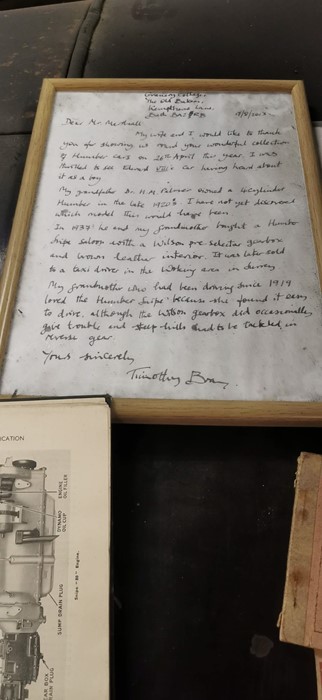 The Old Bakery,
Dear Mr. Marshall
My wife and I would like to thank
you for showing us round your wonderful collection
of Humber cars on 26th April this year. I was
thrilled to see Edward VIII's car having heard about
it as a boy.
My grandfather Dr. H.M. Palmer owned a 6 cylinder
Humber in the late 1920's. I have not yet discovered
which model this would have been.
In 1937 he and my grandmother bought a Humber
Snipe saloon with a Wilson pre selector gearbox
and brown leather interior. It was later sold
to a taxi driver in the Woking area in Surrey.
My Grandmother who had been driving since 1919
loved the Humber Snipe because she found it easy
to drive, although the Wilson gearbox did occasionally
give trouble and steep hills had to be tackled in
reverse gear.
Yours sincerely,
Timothy
ICATION
ENGINE
OIL FILLER
DYNAMO
OIL CUP
SUMP DRAIN PLUG
Snipe "80" Engine.
GEAR BOX
DRAIN PLUG